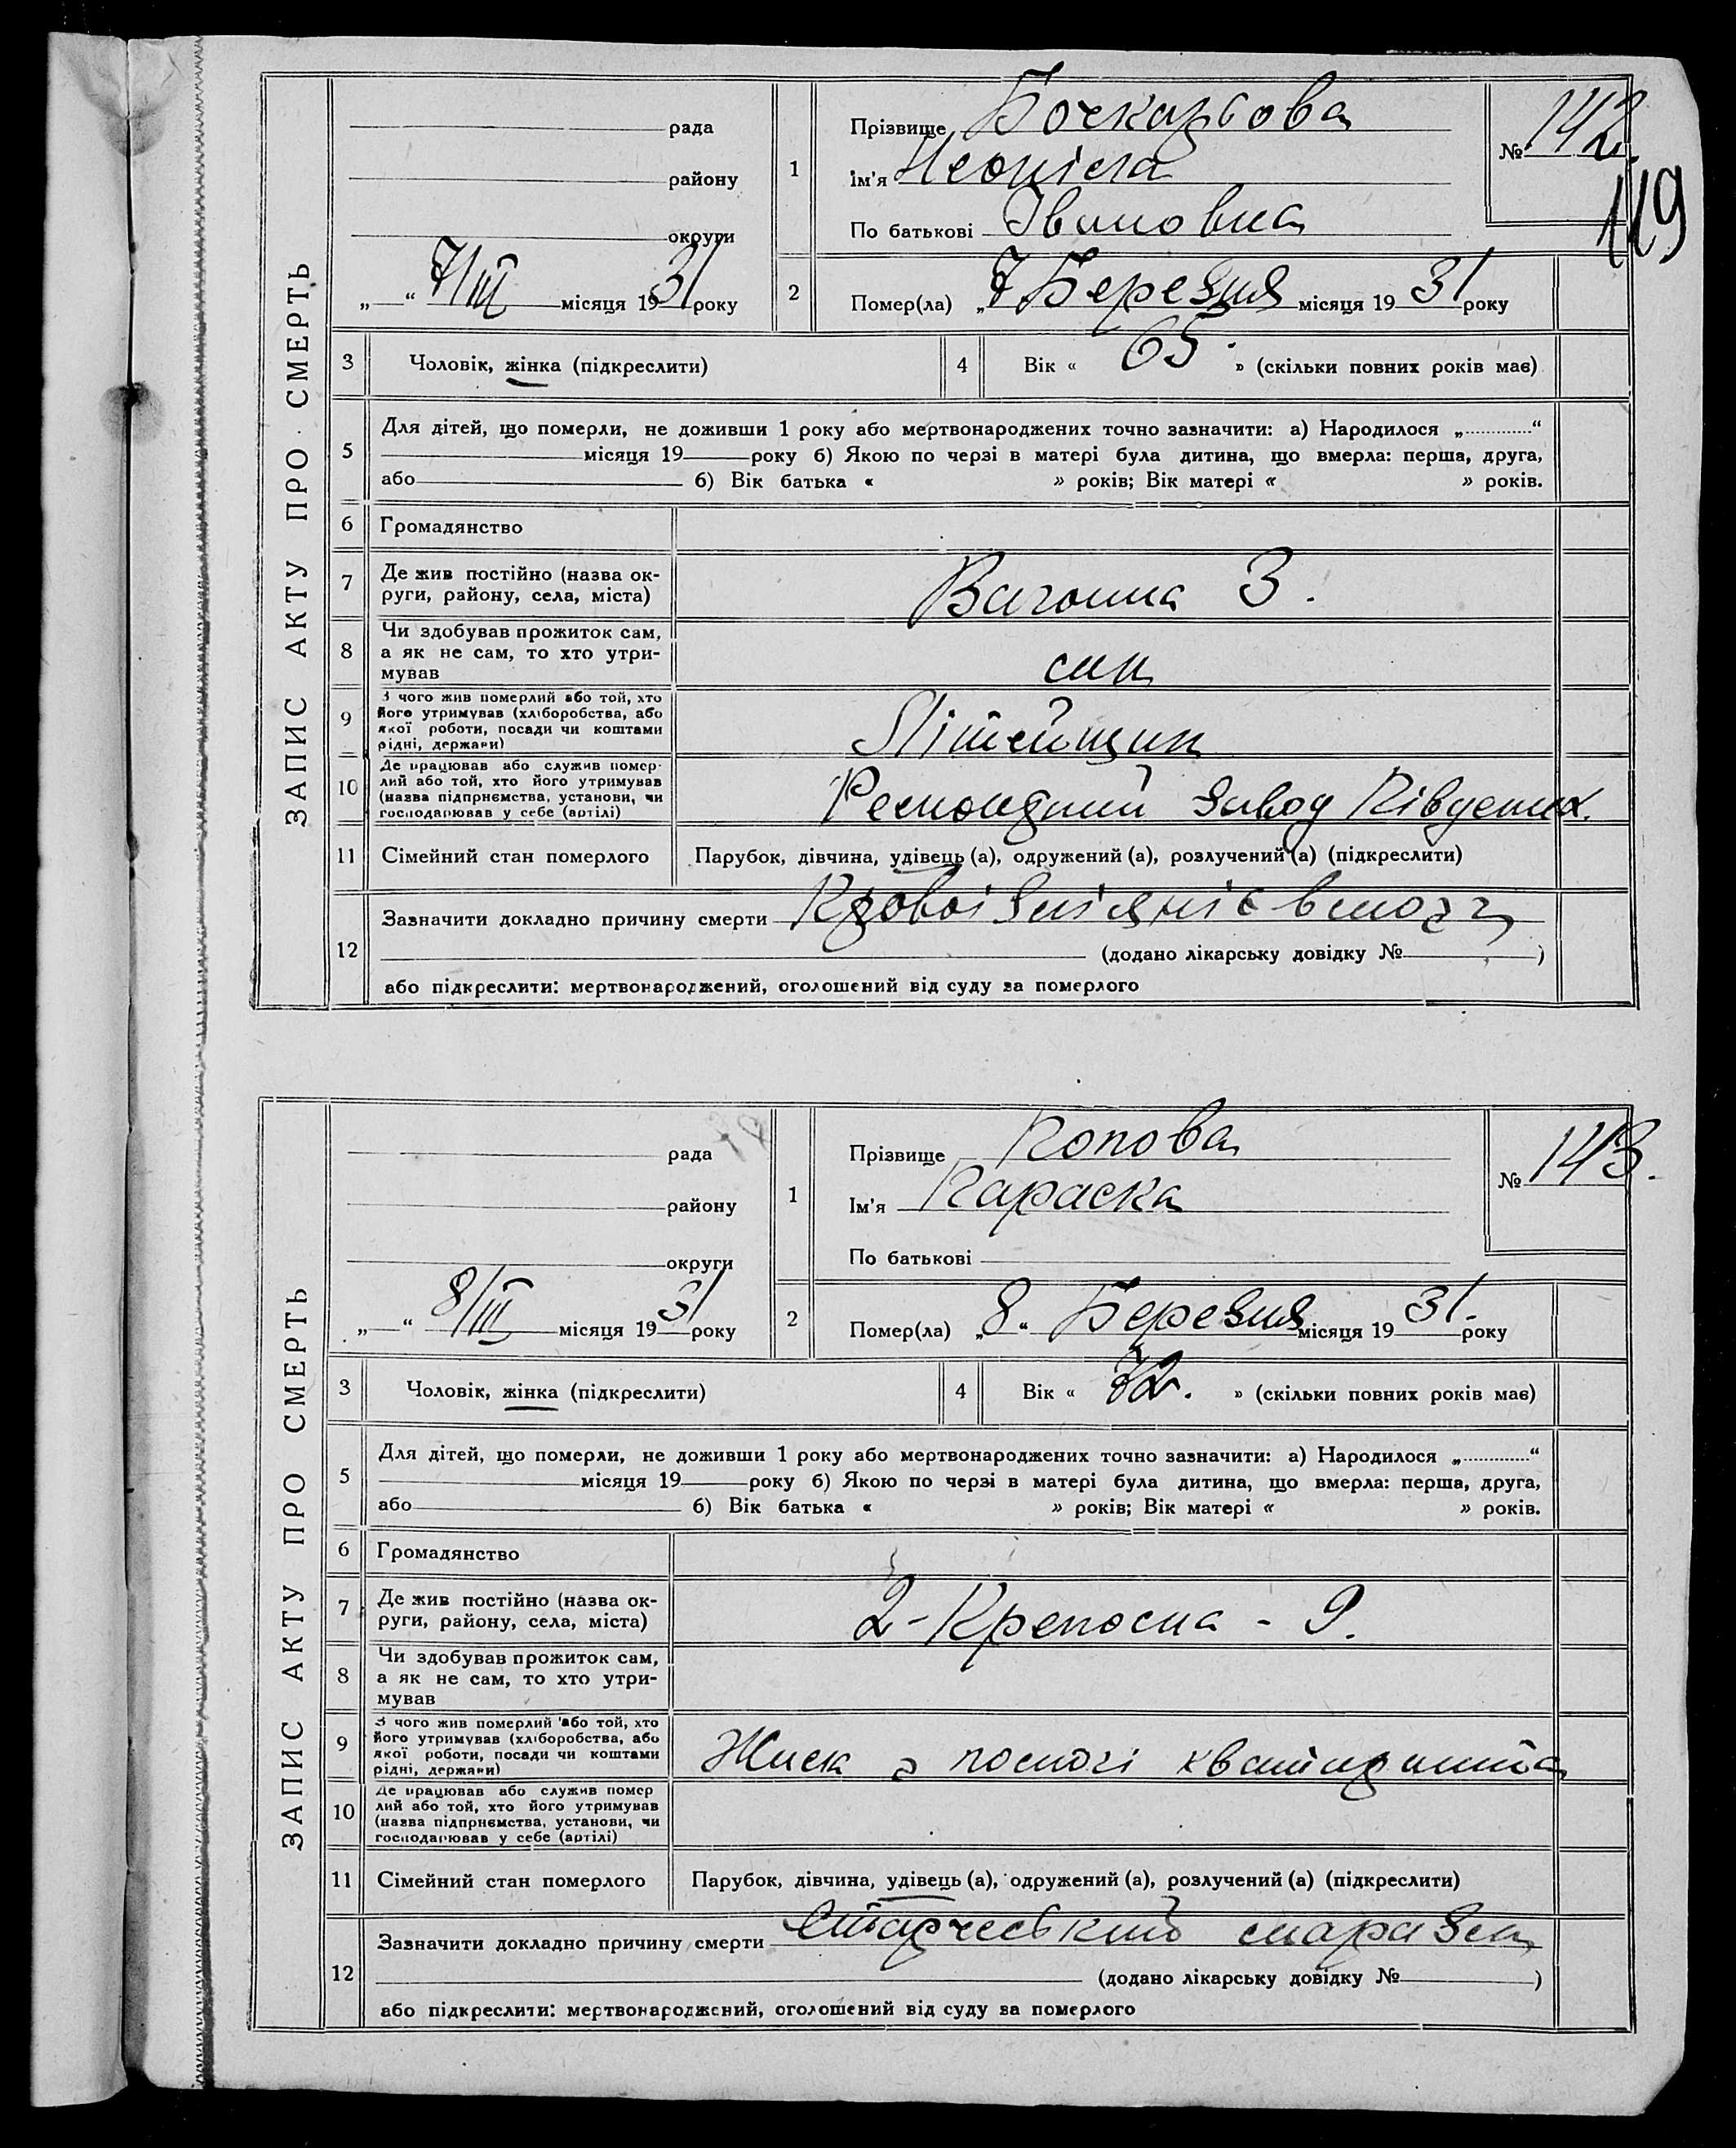 ЗАПИС АКТУ ПРО СМЕРТЬ
рада
району
округи
„ “ 7/III місяця 1931 року
1
Прізвище Бочкарьова
Ім'я Неоніла
По батькові Івановна
№ 142.
119
2
Помер(ла) „7 Березня місяця 19 31 року
3
Чоловік, жінка (підкреслити)
4
Вік « 65. » (скільки повних років має)
5
Для дітей, що померли, не доживши 1 року або мертвонароджених точно зазначити: а) Народилося „............“
місяця 19 року б) Якою по черзі в матері була дитина, що вмерла: перша, друга,
або б) Вік батька « » років; Вік матері « » років.
6
Громадянство
7
Де жив постійно (назва ок-
руги, району, села, міста)
Вагонна 3.
8
Чи здобував прожиток сам,
а як не сам, то хто утри-
мував
син
9
З чого жив померлий або той, хто
його утримував (хліборобства, або
якої роботи, посади чи коштами
рідні, держави)
Літейщик
10
Де працював або служив помер-
лий або той, хто його утримував
(назва підприємства, установи, чи
господарював у себе (артілі)
завод Південних.
11
Сімейний стан померлого
Парубок, дівчина, удівець (а), одружений (а), розлучений (а) (підкреслити)
12
Зазначити докладно причину смерти
(додано лікарську довідку № )
або підкреслити: мертвонароджений, оголошений від суду за померлого
ЗАПИС АКТУ ПРО СМЕРТЬ
рада
району
округи
„ “ 8/III місяця 1931 року
1
Прізвище Попова
Ім'я Параска
По батькові
№ 143.
2
Помер(ла) „8.“ Березня місяця 19 31. року
3
Чоловік, жінка (підкреслити)
4
Вік « 72. » (скільки повних років має)
5
Для дітей, що померли, не доживши 1 року або мертвонароджених точно зазначити: а) Народилося „............“
місяця 19 року б) Якою по черзі в матері була дитина, що вмерла: перша, друга,
або б) Вік батька « » років; Вік матері « » років.
6
Громадянство
7
Де жив постійно (назва ок-
руги, району, села, міста)
2-Крепосна - 9.
8
Чи здобував прожиток сам,
а як не сам, то хто утри-
мував
9
З чого жив померлий або той, хто
його утримував (хліборобства, або
якої роботи, посади чи коштами
рідні, держави)
з помочі
10
Де працював або служив помер
лий або той, хто його утримував
(назва підприємства, установи, чи
господарював у себе (артілі)
11
Сімейний стан померлого
Парубок, дівчина, удівець (а), одружений (а), розлучений (а) (підкреслити)
12
Зазначити докладно причину смерти Старчеський маразм
(додано лікарську довідку № )
або підкреслити: мертвонароджений, оголошений від суду за померлого